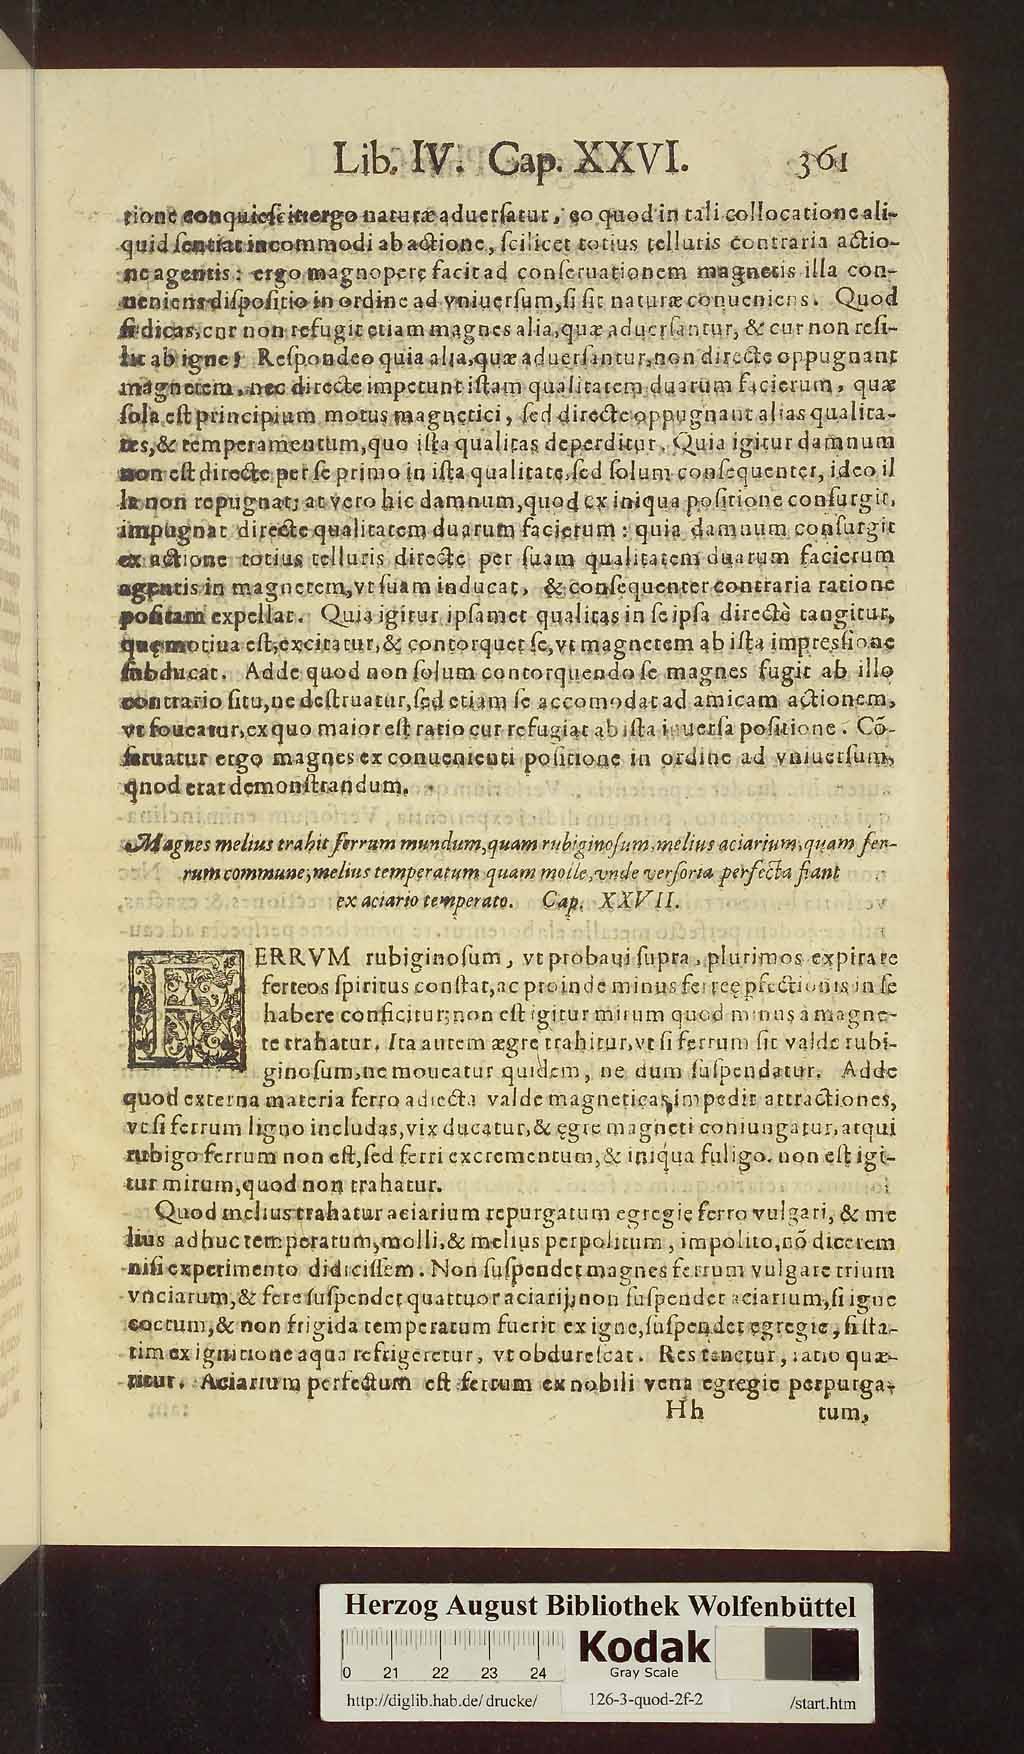 Lib. IV. Cap. XXVI. 361
tione conquiescit ergo naturæ aduersatur, eo quod in tali collocatione ali-
quid sentiat incommodi ab actione, scilicet totius telluris contraria actio-
ne agentis: ergo magnopere facit ad conseruationem magnetis illa con-
ueniens dispositio in ordine ad vniuersum, si sit naturæ conueniens. Quod
si dicas, cur non refugit etiam magnes alia, quæ aduersantur, & cur non resi-
lit ab igne? Respondeo quia alia, quæ aduersantur, non directe oppugnant
magnetem, nec directe impetunt istam qualitatem duarum facierum, quæ
sola est principium motus magnetici, sed directe oppugnant alias qualita-
tes, & temperamentum, quo ista qualitas deperditur. Quia igitur damnum
non est directe per se primo in ista qualitate, sed solum consequenter, ideo il
la non repugnat; at vero hic damnum, quod ex iniqua positione consurgit,
impugnat directe qualitatem duarum facierum: quia damnum consurgit
ex actione totius telluris directe per suam qualitatem duarum facierum
agentis in magnetem, vt suam inducat, & consequenter contraria ratione
positam expellat. Quia igitur ipsamet qualitas in se ipsa directè tangitur,
quę motiua est, excitatur, & contorquet se, vt magnetem ab ista impressione
subducat. Adde quod non solum contorquendo se magnes fugit ab illo
contrario situ, ne destruatur, sed etiam se accomodat ad amicam actionem,
vt foueatur, ex quo maior est ratio cur refugiat ab ista inuersa positione. Cõ-
seruatur ergo magnes ex conuenienti positione in ordine ad vniuersum,
qnod erat demonstrandum.
Magnes melius trahit ferrum mundum, quam rubiginosum, melius aciarium, quam fer-
rum commune, melius temperatum quam molle, vnde versoria perfecta fiant
ex aciario temperato. Cap. XXVII.
FERRVM rubiginosum, vt probaui supra, plurimos expirare
ferreos spiritus constat, ac proinde minus ferreę pfectionis in se
habere conficitur; non est igitur mirum quod minus à magne-
te trahatur. Ita autem ægre trahitur, vt si ferrum sit valde rubi-
ginosum, ne moueatur quidem, ne dum suspendatur. Adde
quod externa materia ferro adiecta valde magneticas impedit attractiones,
vt si ferrum ligno includas, vix ducatur, & ęgre magneti coniungatur, atqui
rubigo ferrum non est, sed ferri excrementum, & iniqua fuligo. non est igi-
tur mirum, quod non trahatur.
Quod melius trahatur aciarium repurgatum egregie ferro vulgari, & me
lius adhuc temperatum, molli, & melius perpolitum, impolito, nõ dicerem
nisi experimento didicissem. Non suspendet magnes ferrum vulgare trium
vnciarum, & fere suspendet quattuor aciarij, non suspendet aciarium, si igne
coctum, & non frigida temperatum fuerit ex igne, suspendet egregie, si sta-
tim ex ignitione aqua refrigeretur, vt obdurescat. Res tenetur, ratio quæ-
ritur. Aciarium perfectum est ferrum ex nobili vena egregie perpurga-
Hh tum,
Herzog August Bibliothek Wolfenbüttel
Kodak
Gray Scale
0 21 22 23 24
http://diglib.hab.de/drucke/ 126-3-quod-2f-2 /start.htm